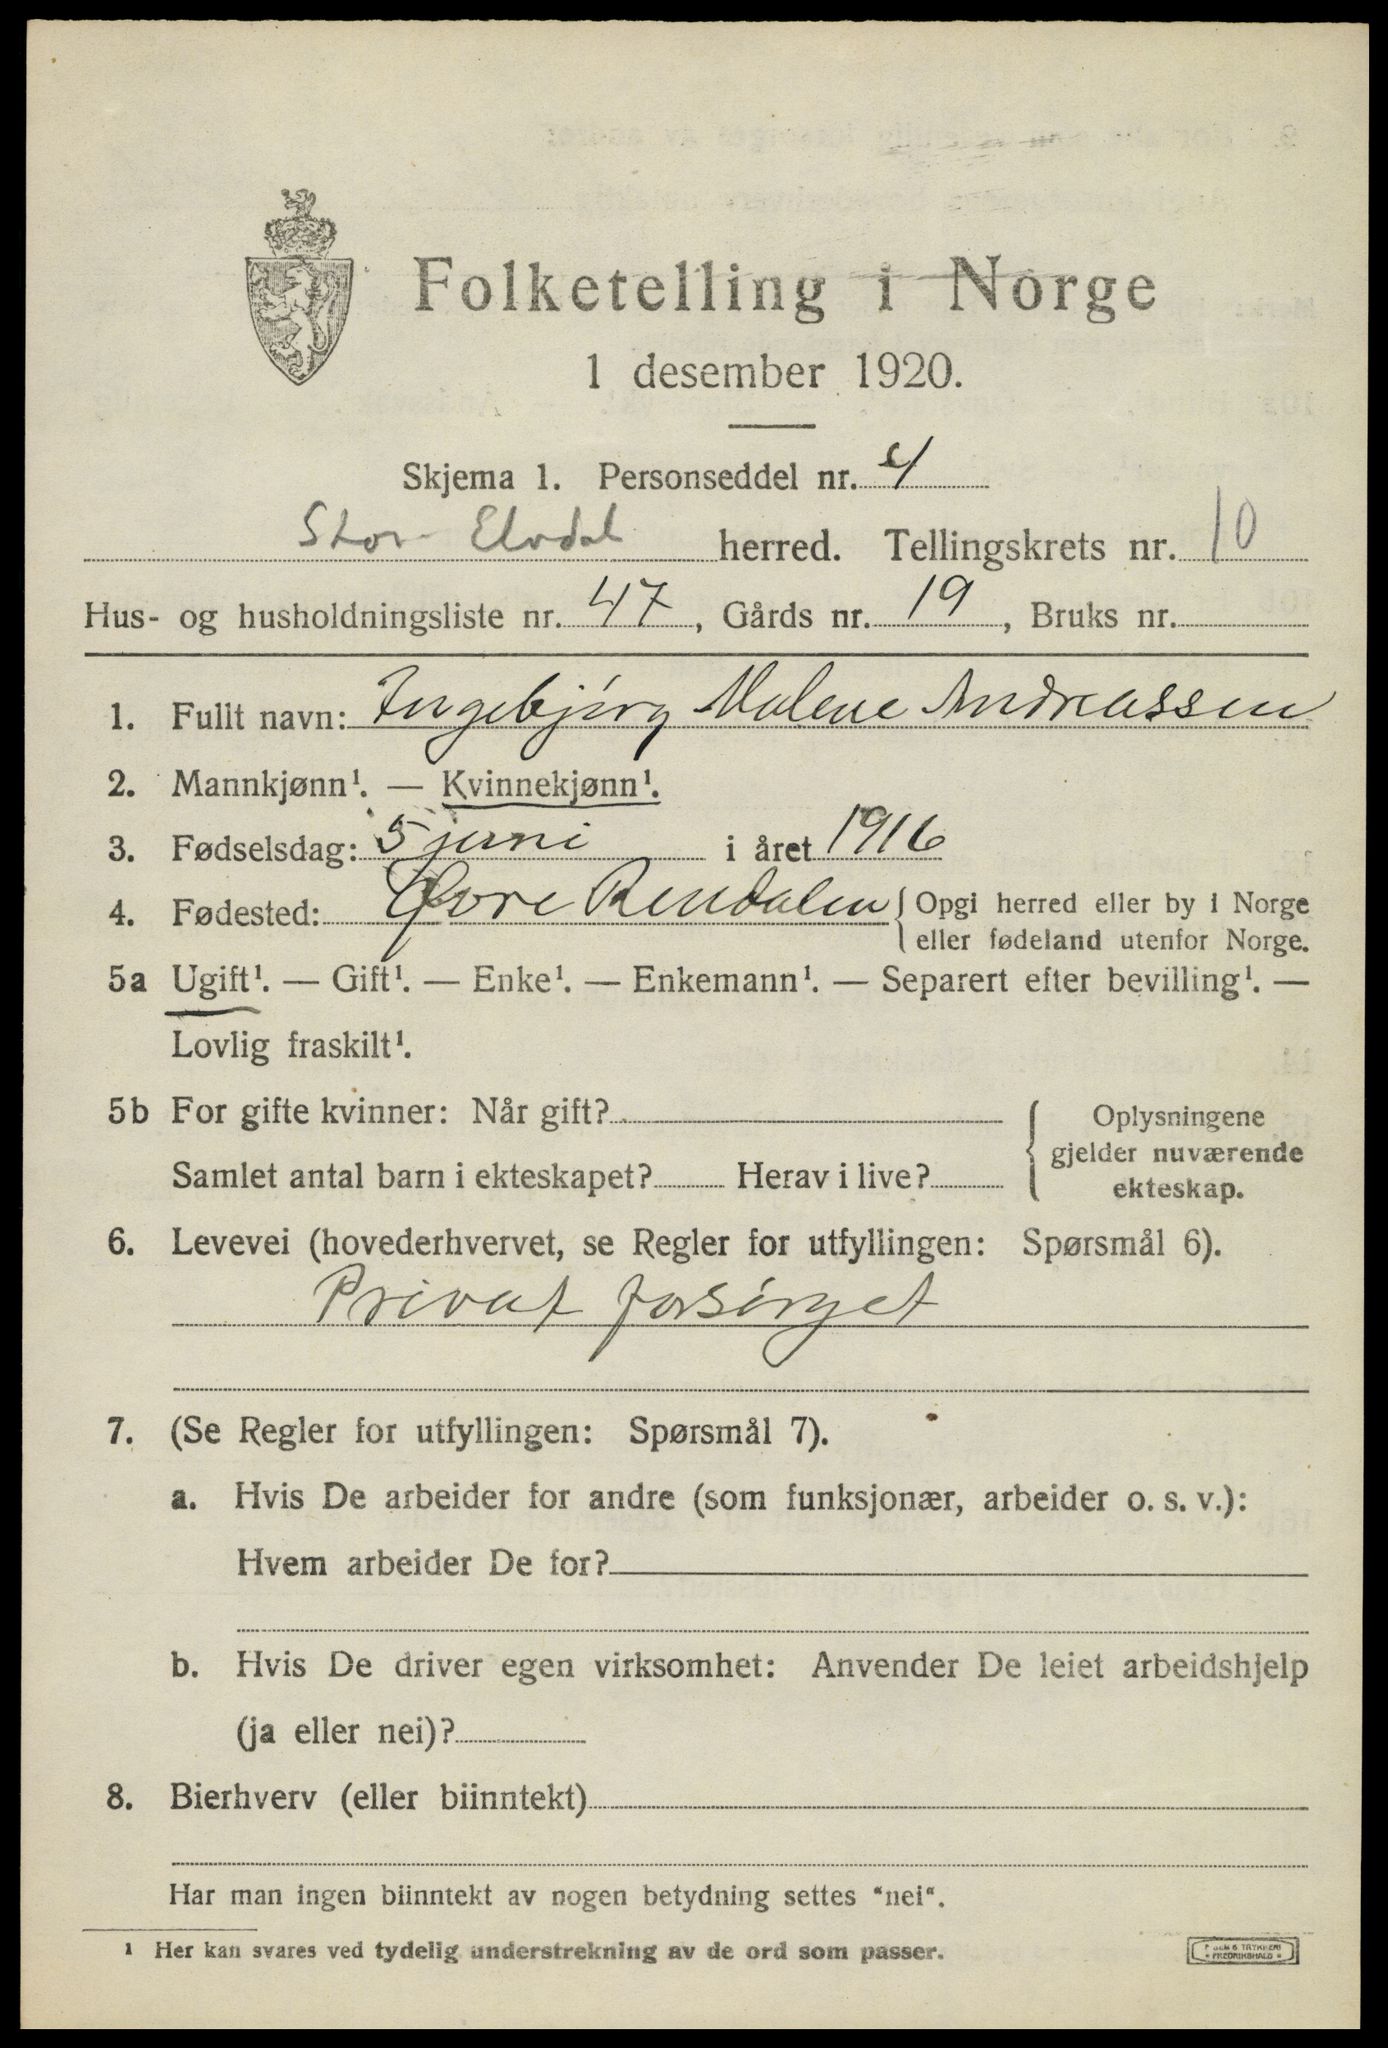 Folketelling i Norge
1 desember 1920.
Skjema 1. Personseddel nr. 4
Stor-Elvdal herred. Tellingskrets nr. 10
Hus- og husholdningsliste nr. 47, Gårds nr. 19, Bruks nr.
1. Fullt navn: Ingebjörg Malene Andreassen
2. Mannkjønn¹. — Kvinnekjønn¹.
3. Fødselsdag: 5 juni i året 1916
4. Fødested: Øvre Rendalen { Opgi herred eller by i Norge
eller fødeland utenfor Norge.
5a Ugift¹. — Gift¹. — Enke¹. — Enkemann¹. — Separert efter bevilling¹. —
Lovlig fraskilt¹.
5b For gifte kvinner: Når gift?
Samlet antal barn i ekteskapet? Herav i live?
{ Oplysningene
gjelder nuværende
ekteskap.
6. Levevei (hovederhvervet, se Regler for utfyllingen: Spørsmål 6).
Privat forsörget
7. (Se Regler for utfyllingen: Spørsmål 7).
a. Hvis De arbeider for andre (som funksjonær, arbeider o. s. v.):
Hvem arbeider De for?
b. Hvis De driver egen virksomhet: Anvender De leiet arbeidshjelp
(ja eller nei)?
8. Bierhverv (eller biinntekt)
Har man ingen biinntekt av nogen betydning settes "nei".
¹ Her kan svares ved tydelig understrekning av de ord som passer.
TRYKKERI
FREDRIKSHALD